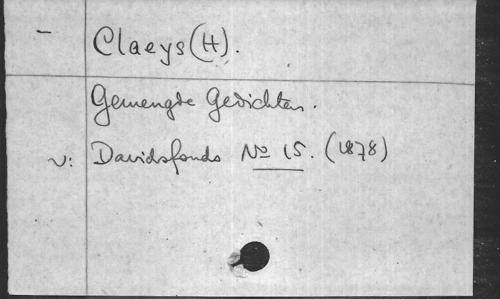 – Claeys (H).
Gemengde Gedichten.
v: Davidsfonds No 15. (1878)